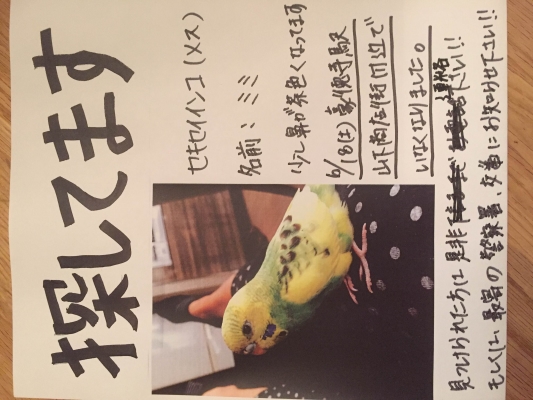 探してます
セキセイインコ (メス)
名前：ミミ
少し鼻が茶色くなってます
6/18(土) 豪徳寺駅
山下商店街周辺で
いなくなりました。
見つけられた方は是非連絡下さい!!
もしくは、最寄の警察署、交番にお知らせ下さい!!